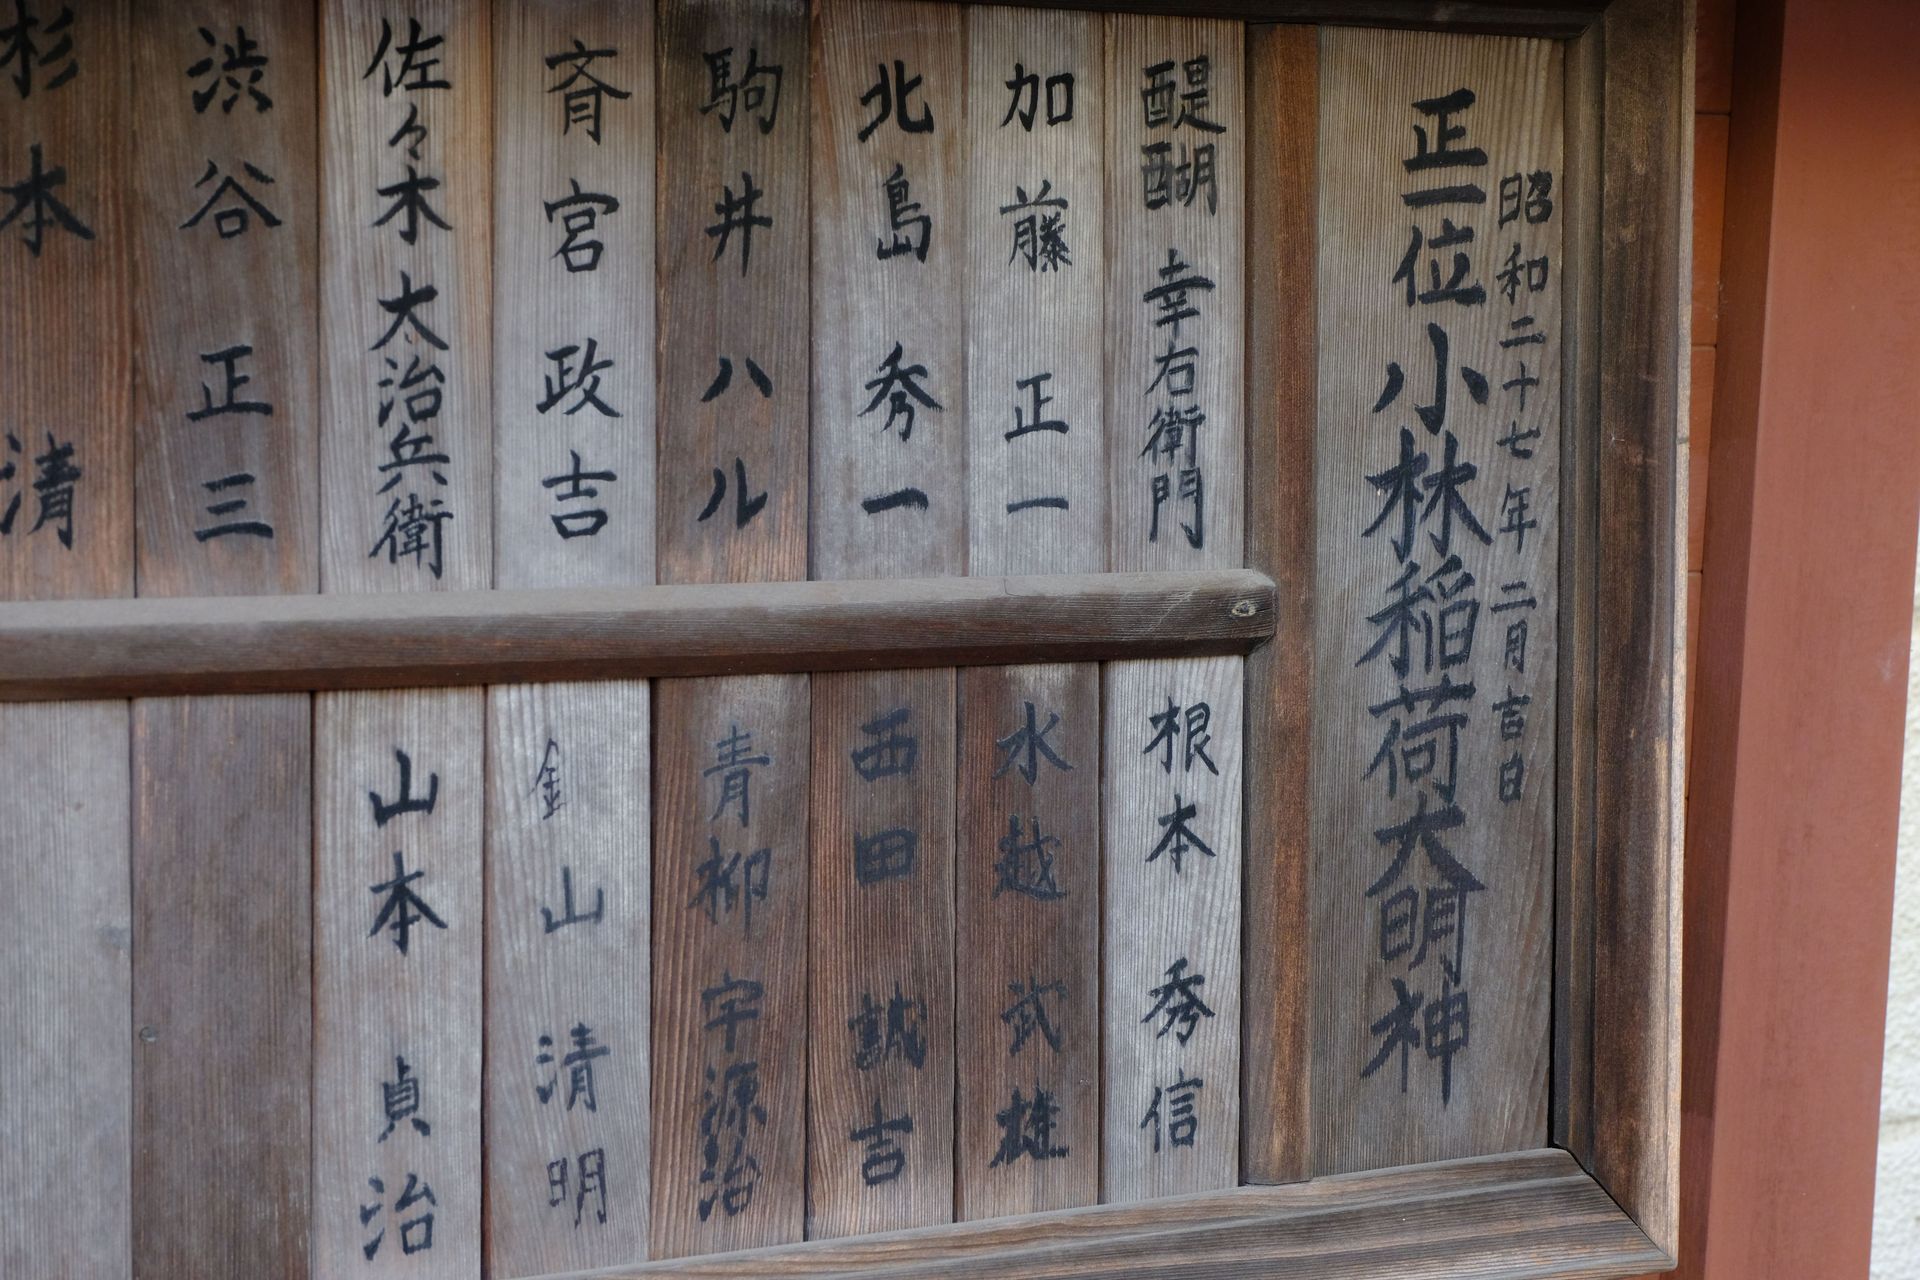 昭和二十七年二月吉日
正一位小林稲荷大明神
醍醐幸右衛門
加藤正一
北島秀一
駒井ハル
斉宮政吉
佐々木大治兵衛
渋谷正三
杉本清
根本秀信
水越武雄
西田誠吉
青柳宇源治
金山清明
山本貞治